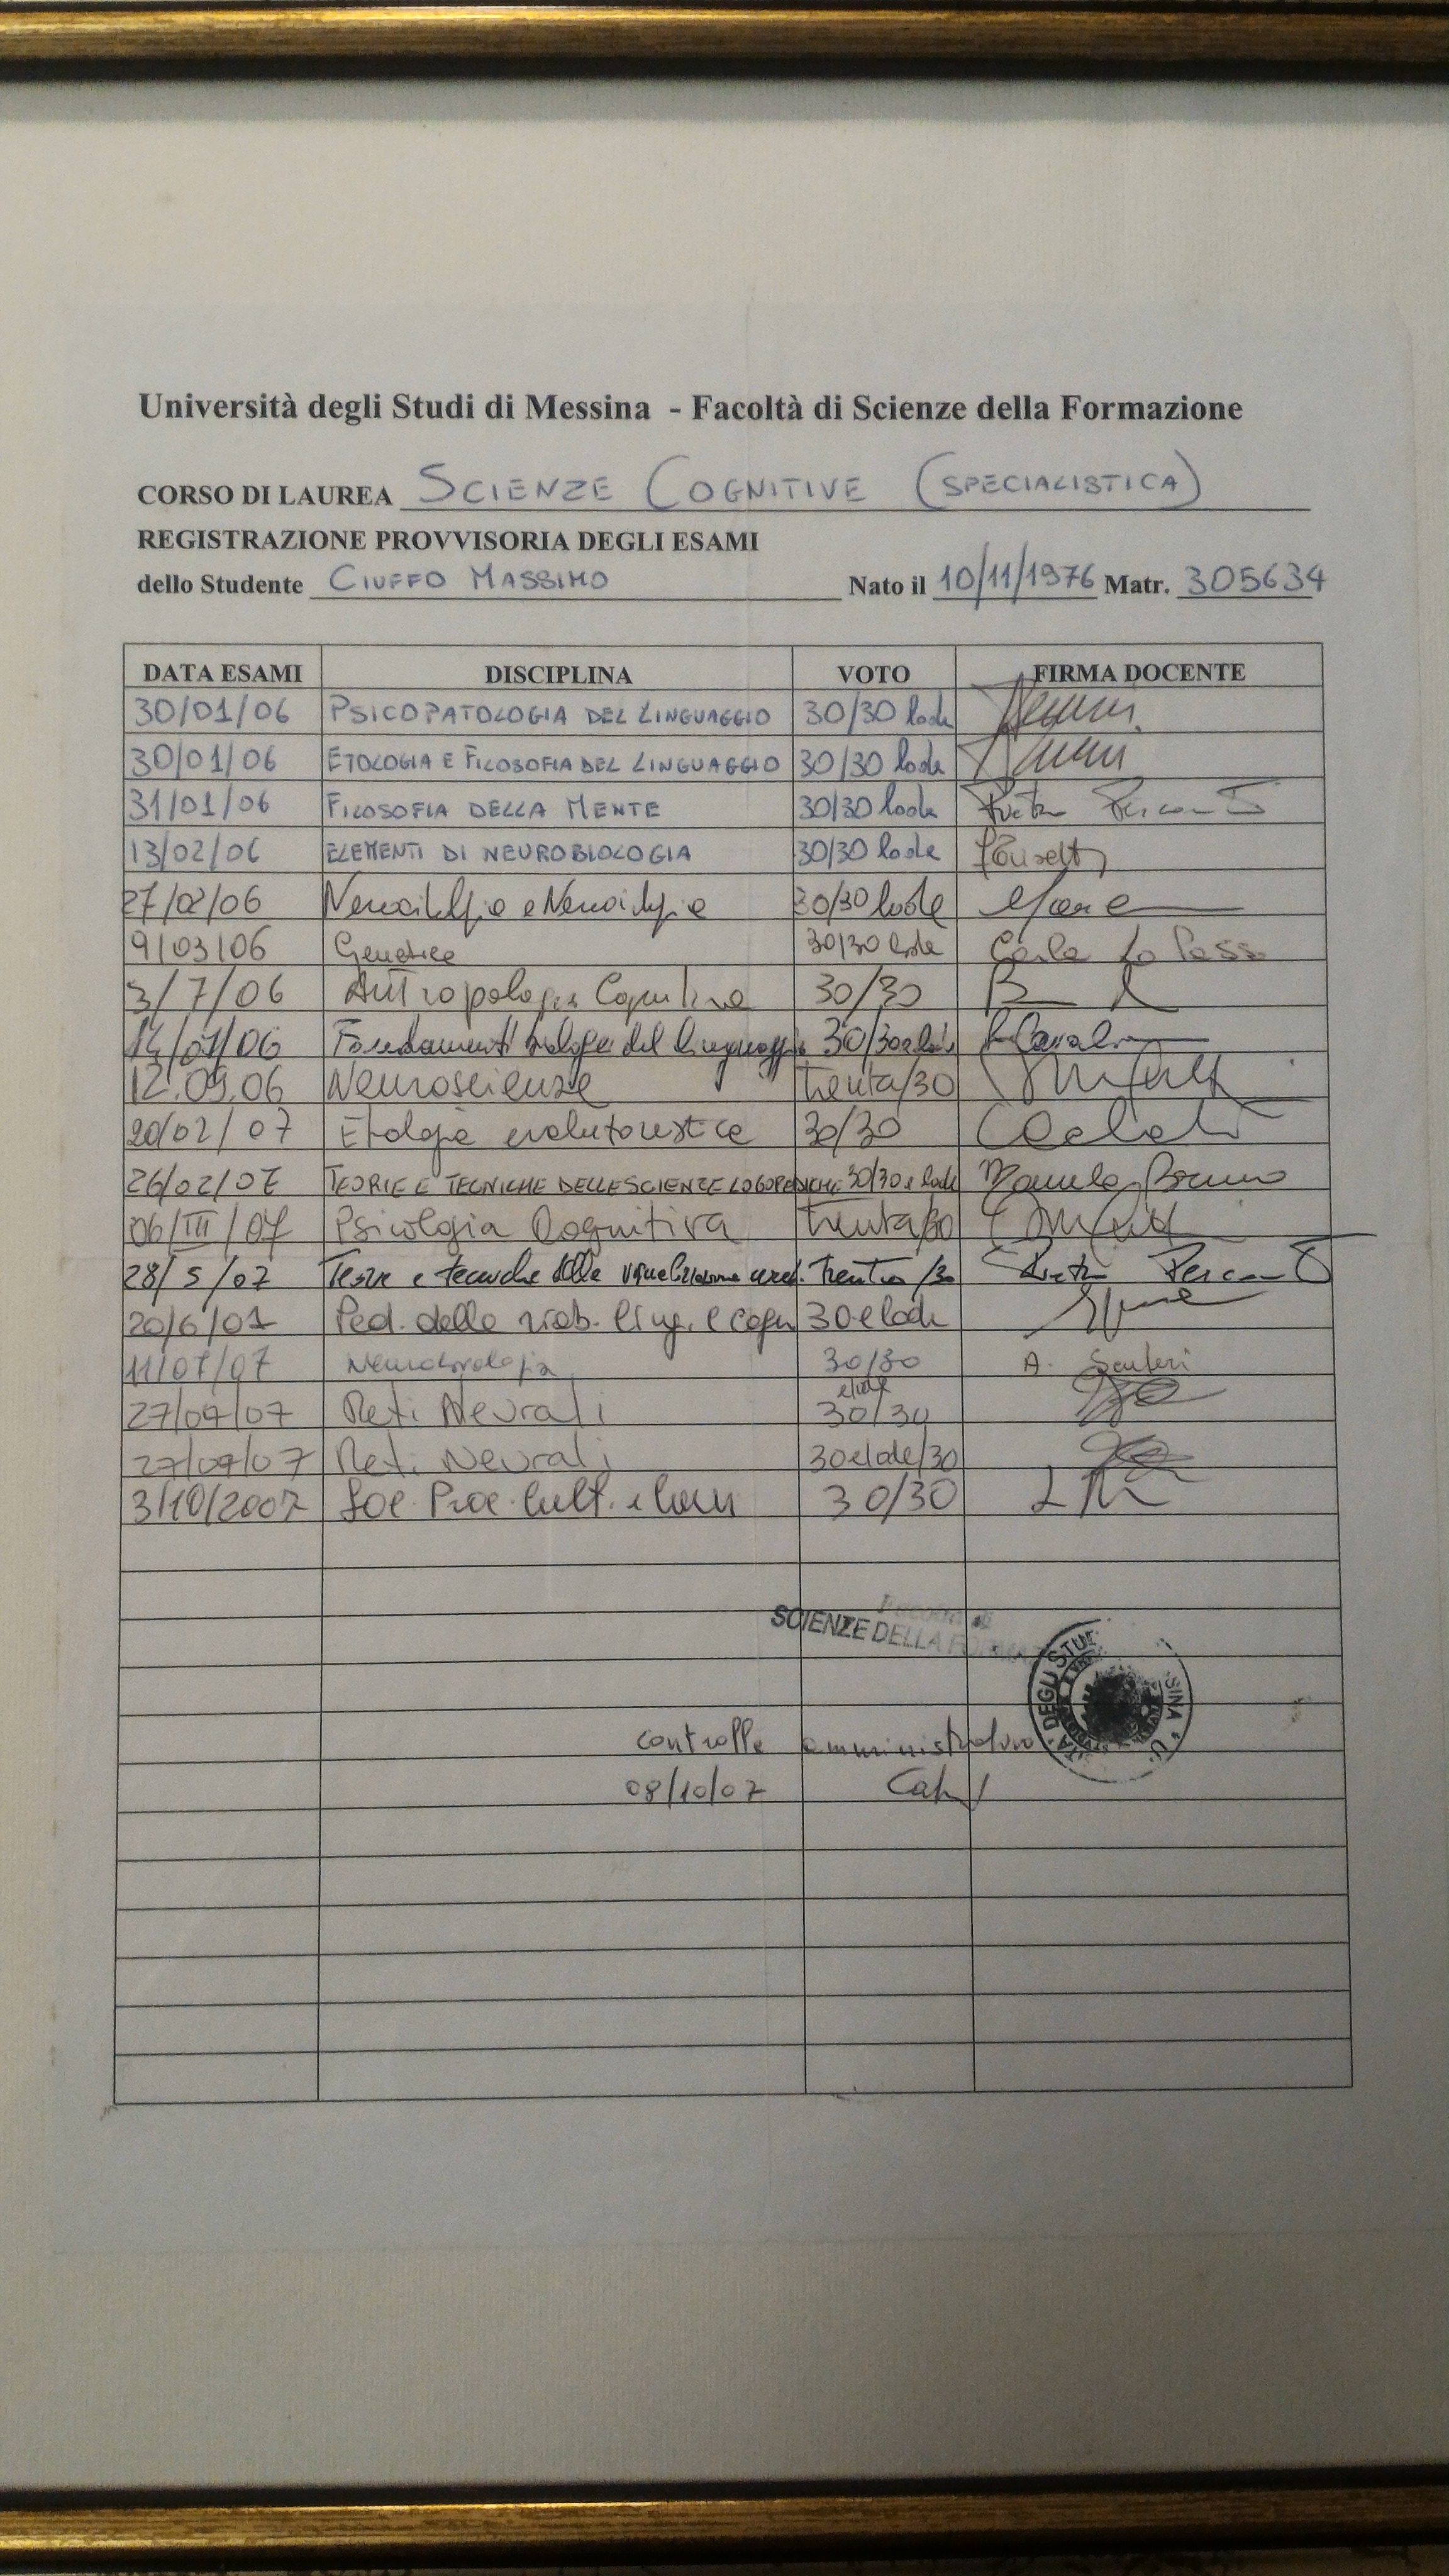 Università degli Studi di Messina - Facoltà di Scienze della Formazione
CORSO DI LAUREA SCIENZE COGNITIVE (SPECIALISTICA)
REGISTRAZIONE PROVVISORIA DEGLI ESAMI
dello Studente CIUFFO MASSIMO Nato il 10/11/1976 Matr. 305634
DATA ESAMI DISCIPLINA VOTO FIRMA DOCENTE
30/01/06 PSICOPATOLOGIA DEL LINGUAGGIO 30/30 lode
30/01/06 ETOLOGIA E FILOSOFIA DEL LINGUAGGIO 30/30 lode
31/01/06 FILOSOFIA DELLA MENTE 30/30 lode Pietro Perconti
13/02/06 ELEMENTI DI NEUROBIOLOGIA 30/30 lode
27/02/06 30/30 lode
9/03/06 Genetica 30/30 lode Carla Lo Passo
3/7/06 Antropologia Cognitiva 30/30
14/07/06 Fondamenti biologici del linguaggio 30/30 e lode
12.09.06 Neuroscienze trenta/30
20/02/07 Etologia evoluzionistica 30/30
26/02/07 TEORIE E TECNICHE DELLE SCIENZE LOGOPEDICHE 30/30 e lode Bruno
06/III/07 Psicologia Cognitiva trenta/30
28/5/07 Teorie e tecniche della trenta/30 Pietro Perconti
20/6/07 Ped. della riab. ling. e cogn 30 e lode
11/07/07 30/30 A.
27/09/07 Reti Neurali 30/30
27/09/07 Reti Neurali 30 e lode/30
3/10/2007 Soc. Proc. Cult. e Com 30/30
SCIENZE DELLA
DEGLI STU
SINA
controllo amministrativo
08/10/07